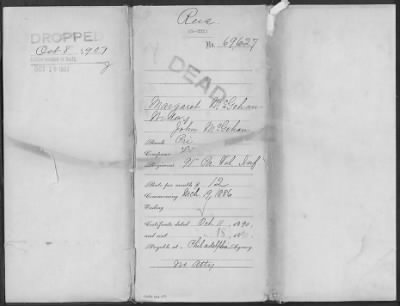 DROPPED
Oct 8 1907
Reis.
No. 69,627
DEAD
Margaret McGahan
Widow
John McGahan
Rank Pri
Company
Regiment 91 Pa. Vol. Inf
Rate per month $ 12
Commencing Mch 19, 1886
Ending
Certificate dated Oct 11 1890
and sent 13
Payable at Philadelphia Agency
No Atty